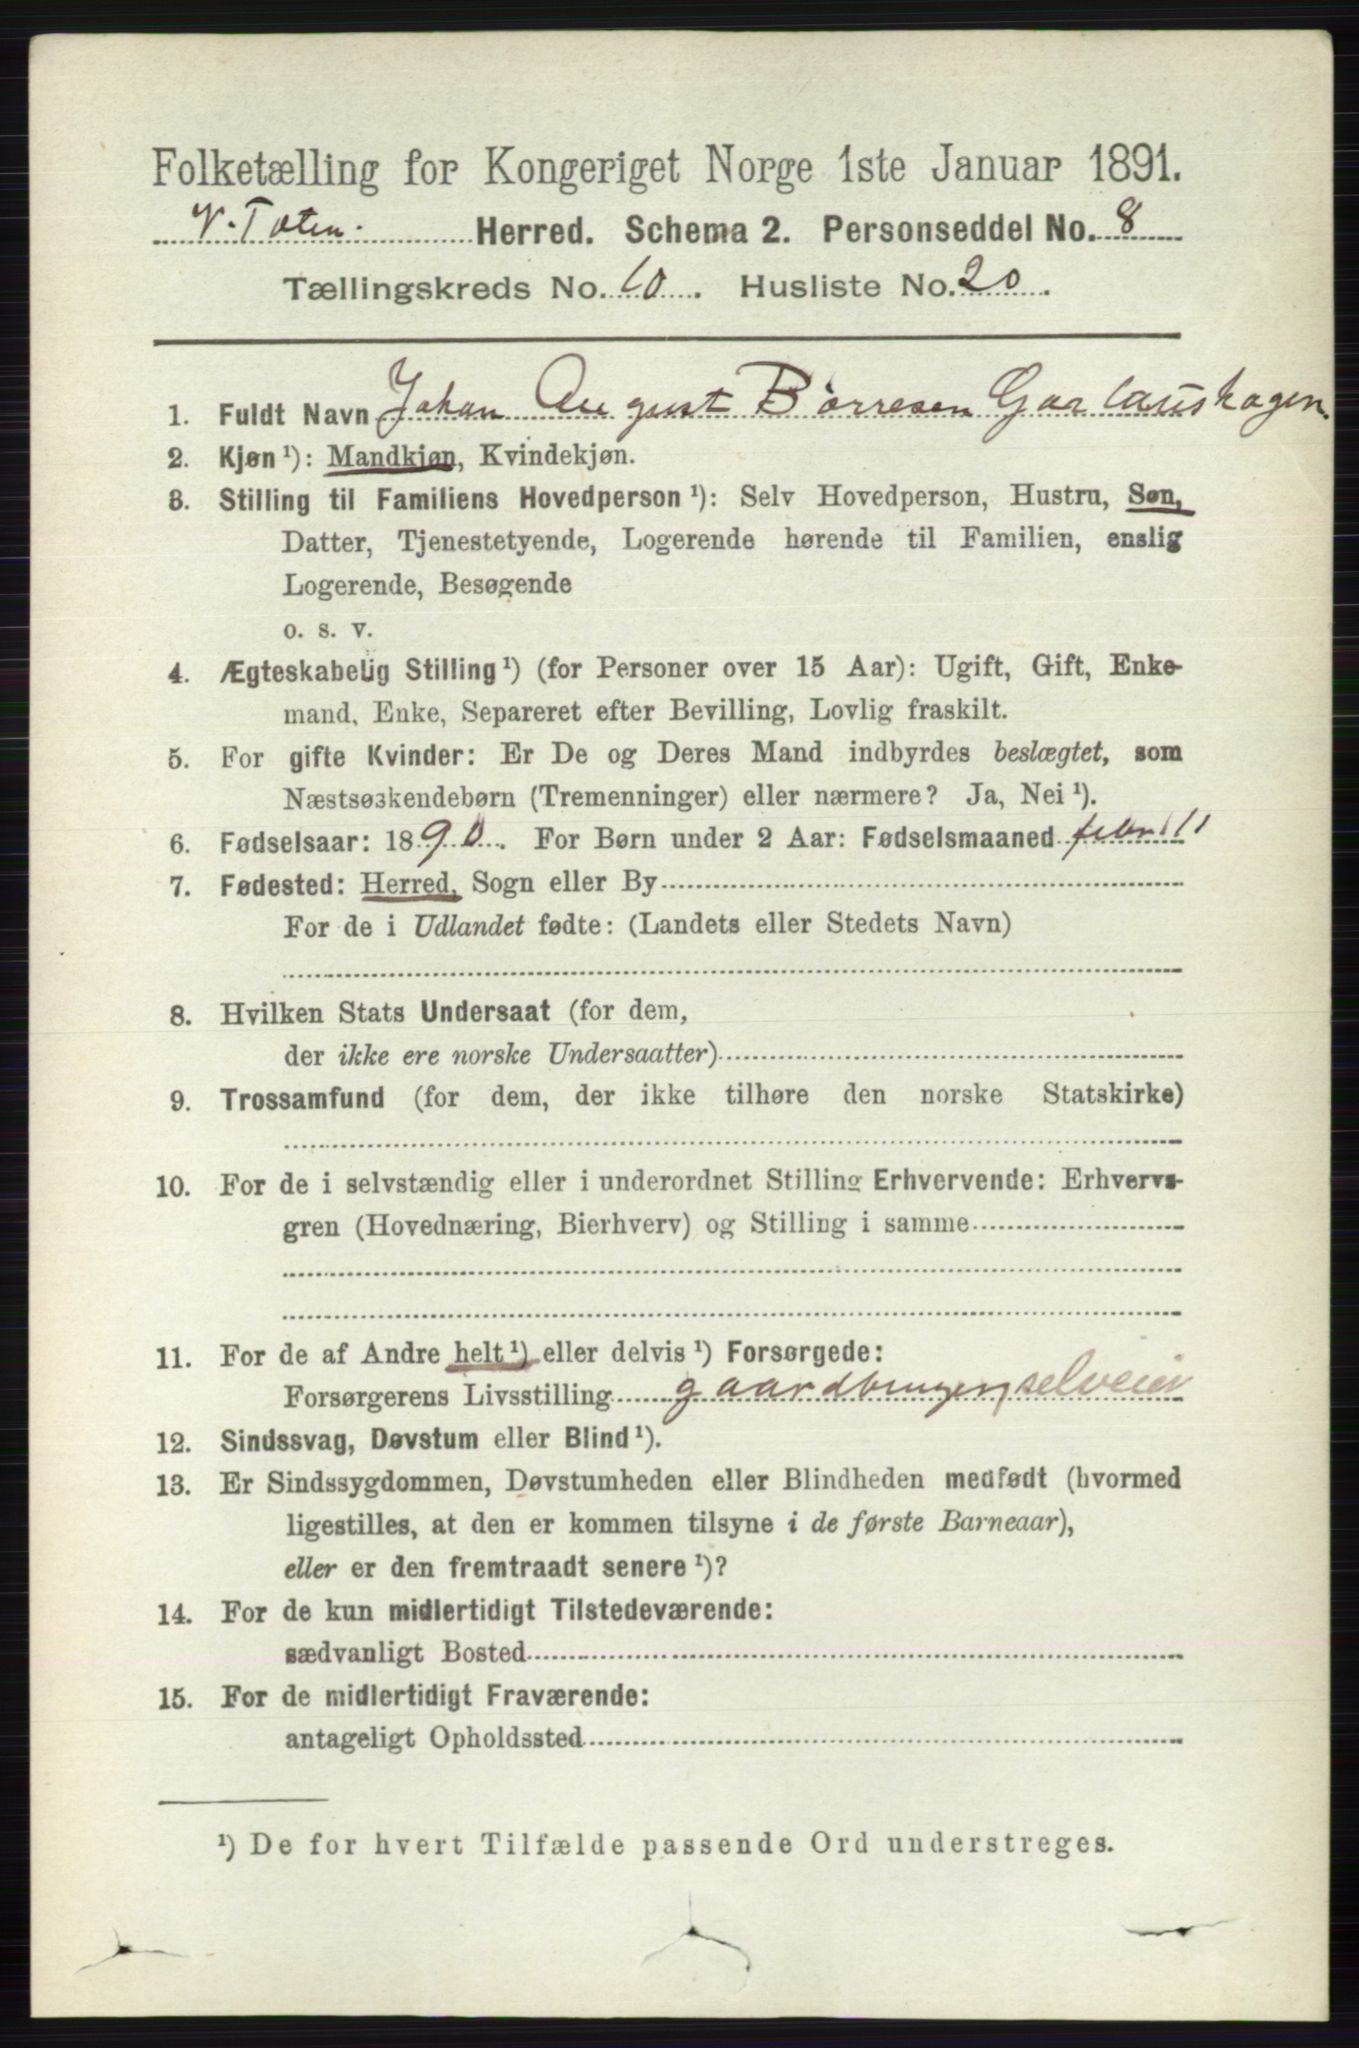 Folketælling for Kongeriget Norge 1ste Januar 1891.
V. Toten. Herred. Schema 2. Personseddel No. 8
Tællingskreds No. 10. Husliste No. 20.
1. Fuldt Navn Johan August Börresen Garlaushagen
2. Kjøn ¹): Mandkjøn, Kvindekjøn.
3. Stilling til Familiens Hovedperson ¹): Selv Hovedperson, Hustru, Søn,
Datter, Tjenestetyende, Logerende hørende til Familien, enslig
Logerende, Besøgende
o. s. v.
4. Ægteskabelig Stilling ¹) (for Personer over 15 Aar): Ugift, Gift, Enke-
mand, Enke, Separeret efter Bevilling, Lovlig fraskilt.
5. For gifte Kvinder: Er De og Deres Mand indbyrdes beslægtet, som
Næstsøskendebørn (Tremenninger) eller nærmere? Ja, Nei ¹).
6. Fødselsaar: 1890. For Børn under 2 Aar: Fødselsmaaned febr 11
7. Fødested: Herred, Sogn eller By
For de i Udlandet fødte: (Landets eller Stedets Navn)
8. Hvilken Stats Undersaat (for dem,
der ikke ere norske Undersaatter)
9. Trossamfund (for dem, der ikke tilhøre den norske Statskirke)
10. For de i selvstændig eller i underordnet Stilling Erhvervende: Erhvervs-
gren (Hovednæring, Bierhverv) og Stilling i samme
11. For de af Andre helt ¹) eller delvis ¹) Forsørgede:
Forsørgerens Livsstilling gaardbruger, selveier
12. Sindssvag, Døvstum eller Blind ¹).
13. Er Sindssygdommen, Døvstumheden eller Blindheden medfødt (hvormed
ligestilles, at den er kommen tilsyne i de første Barneaar),
eller er den fremtraadt senere ¹)?
14. For de kun midlertidigt Tilstedeværende:
sædvanligt Bosted
15. For de midlertidigt Fraværende:
antageligt Opholdssted
¹) De for hvert Tilfælde passende Ord understreges.